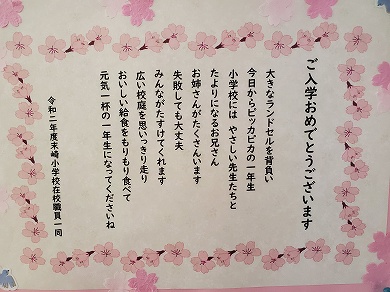 ご入学おめでとうございます
大きなランドセルを背負い
今日からピッカピカの一年生
小学校には やさしい先生たちと
たよりになるお兄さん
お姉さんがたくさんいます
失敗しても大丈夫
みんながたすけてくれます
広い校庭を思いっきり走り
おいしい給食をもりもり食べて
元気一杯の一年生になってくださいね
令和二年度末崎小学校在校職員一同